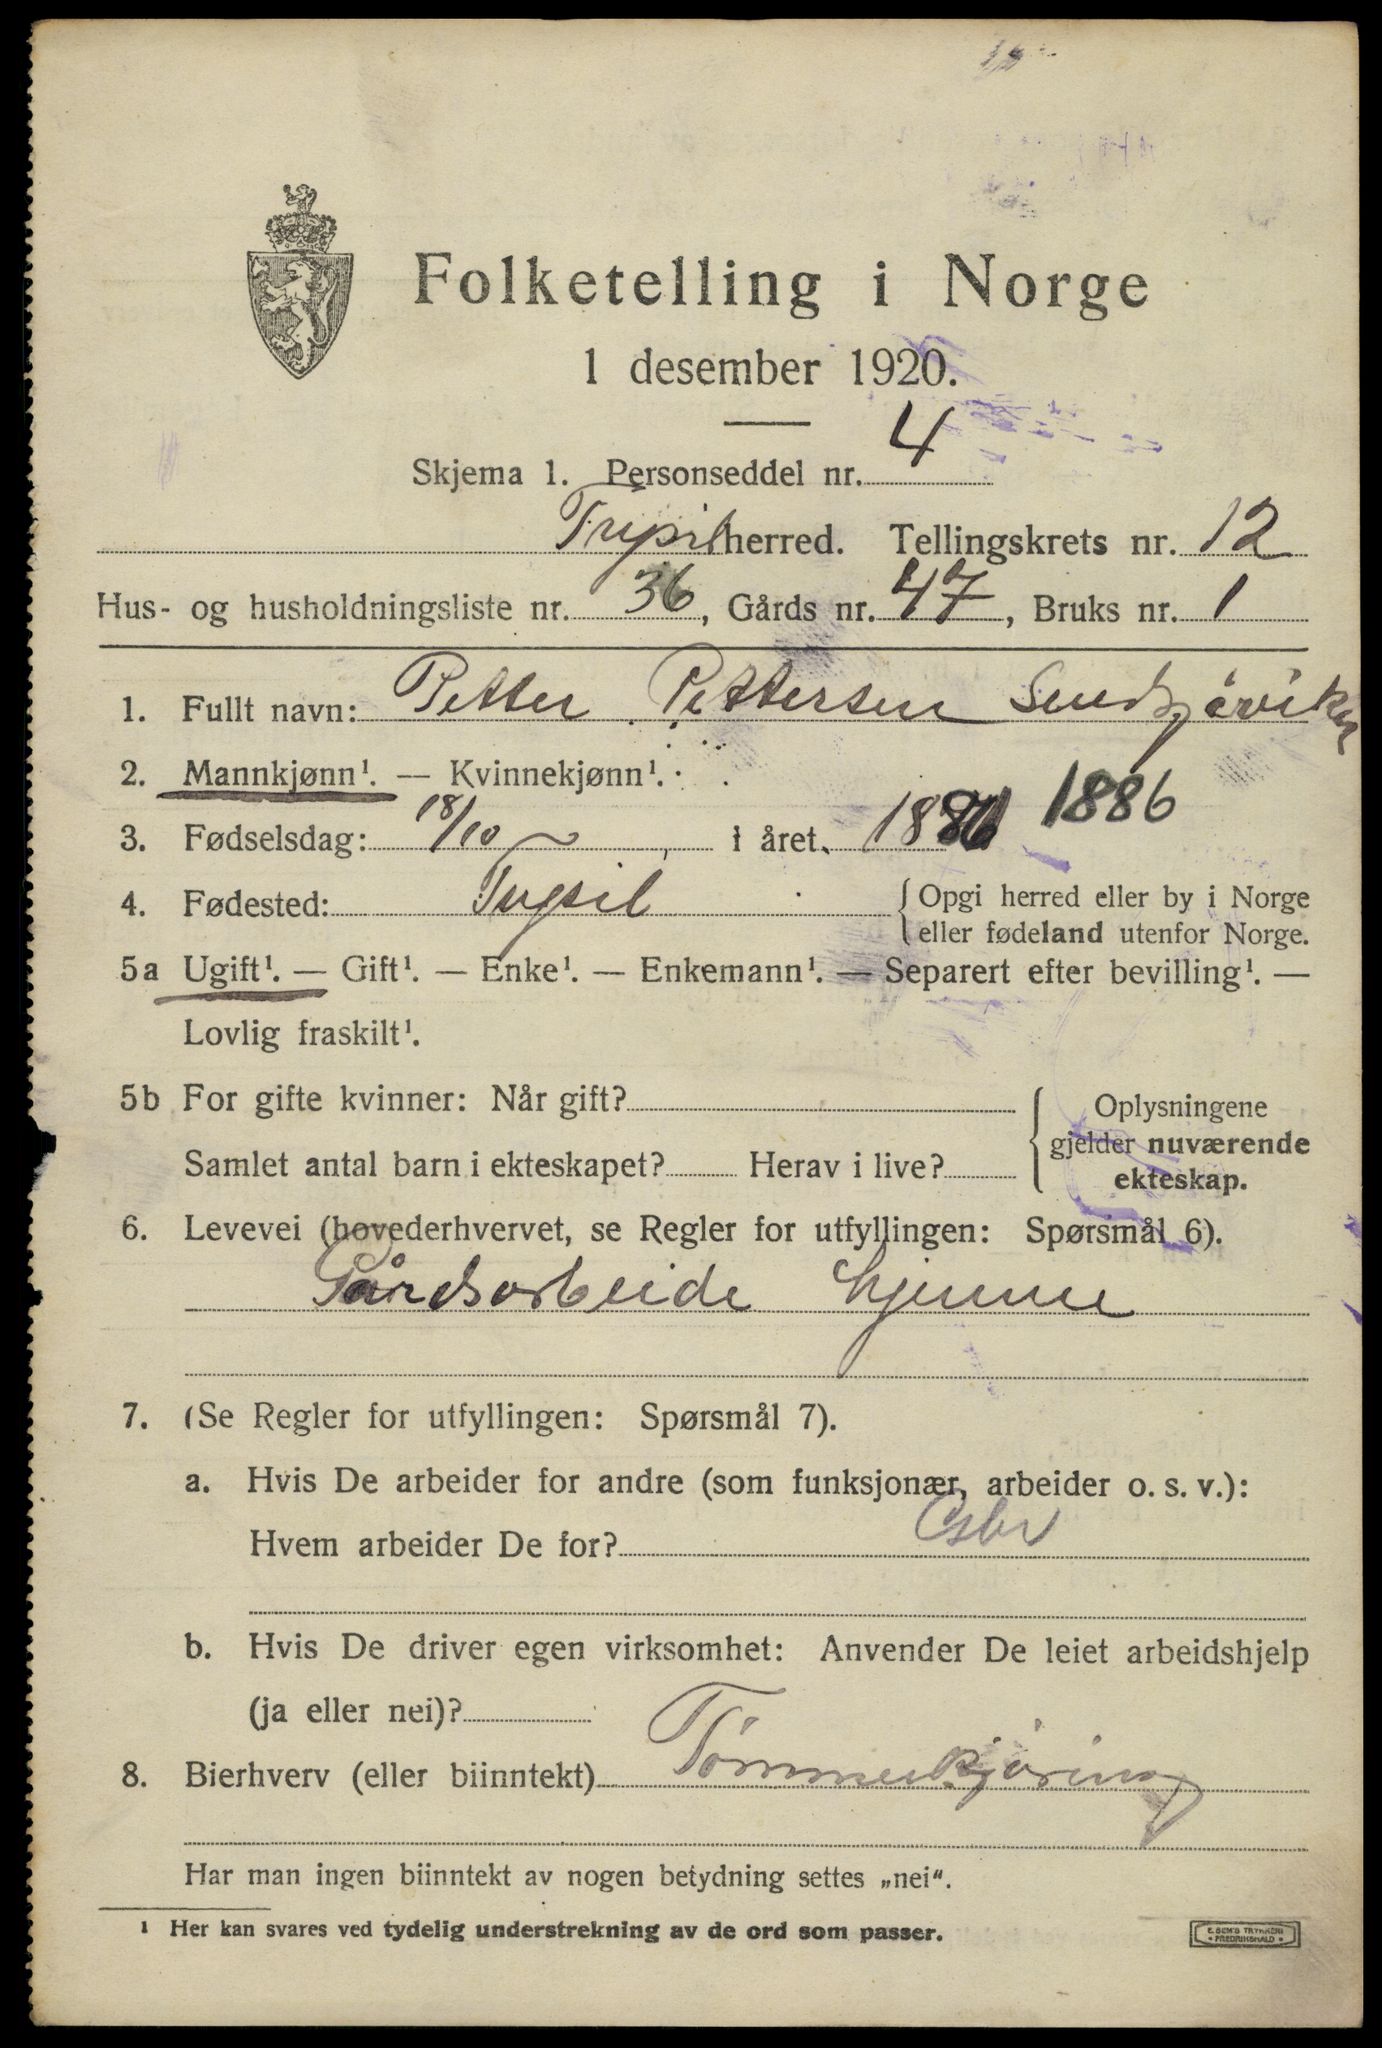 Folketelling i Norge
1 desember 1920.
Skjema 1. Personseddel nr. 4
Trysil herred. Tellingskrets nr. 12
Hus- og husholdningsliste nr. 36, Gårds nr. 47, Bruks nr. 1
1. Fullt navn: Petter Pettersen
2. Mannkjønn¹. — Kvinnekjønn¹.
3. Fødselsdag: 18/10, i året 1886 1886
4. Fødested: Trysil { Opgi herred eller by i Norge
eller fødeland utenfor Norge.
5a Ugift¹. — Gift¹. — Enke¹. — Enkemann¹. — Separert efter bevilling¹. —
Lovlig fraskilt¹.
5b For gifte kvinner: Når gift?
Samlet antal barn i ekteskapet? Herav i live?
{ Oplysningene
gjelder nuværende
ekteskap.
6. Levevei (hovederhvervet, se Regler for utfyllingen: Spørsmål 6).
Gårdsarbeide hjemme
7. (Se Regler for utfyllingen: Spørsmål 7).
a. Hvis De arbeider for andre (som funksjonær, arbeider o. s. v.):
Hvem arbeider De for?
b. Hvis De driver egen virksomhet: Anvender De leiet arbeidshjelp
(ja eller nei)?
8. Bierhverv (eller biinntekt) Tømmerkjøring
Har man ingen biinntekt av nogen betydning settes „nei“.
¹ Her kan svares ved tydelig understrekning av de ord som passer.
E. SEM'S TRYKKERI
FREDRIKSHALD